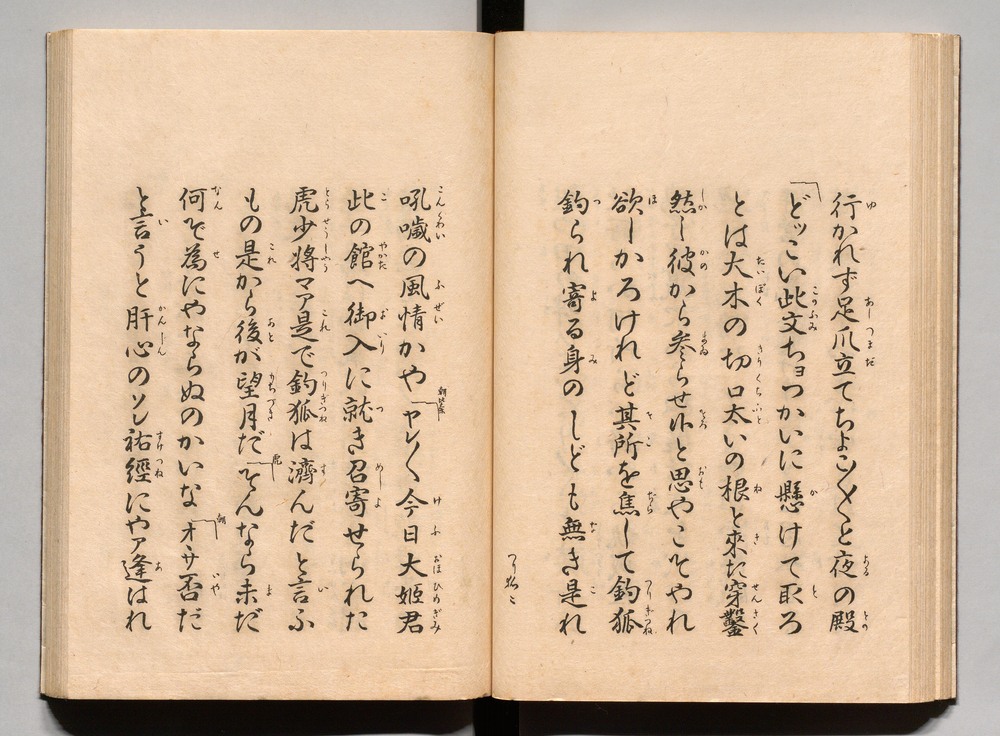 行かれず足爪立てちよこ〳〵と夜の殿
「どッこい此文ちョっかいに懸けて取ろ
とは大木の切口太いの根と來た穿鑿
然し彼から參らせ候と思やこそやれ
欲しかろけれど其所を焦して釣狐
釣られ寄る身のしども無き是れ
つりぎつね
吼噦の風情かや「ヤレ〳〵今日大姫君
此の館へ御入に就き召寄せられた
虎少將マア是で釣狐は濟んだと言ふ
もの是から後が望月だ「そんなら未だ
何ぞ為にやならぬのかいな「オヽサ否だ
と言うと肝心のソレ祐經にやア逢はれ